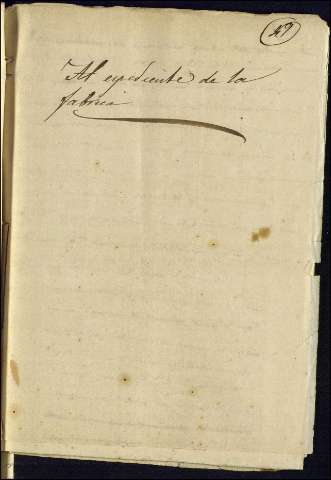 Al expediente de la
fabrica